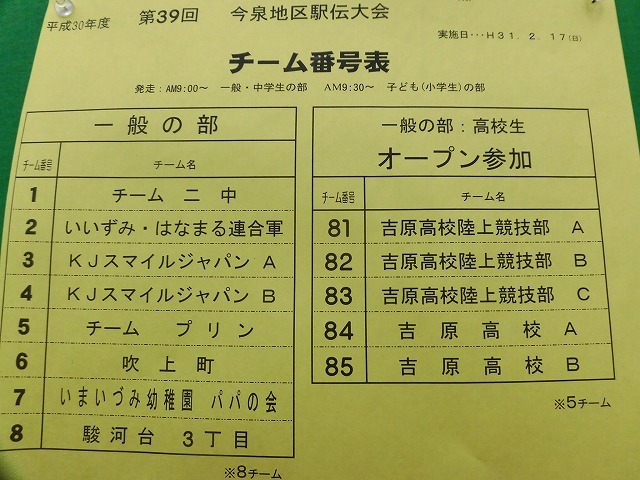 平成30年度 第39回 今泉地区駅伝大会
実施日･･･H31.2.17(日)
チーム番号表
発走：AM9:00～ 一般・中学生の部 AM9:30～ 子ども(小学生)の部
一般の部
チーム番号 チーム名
1 チーム 二中
2 いいずみ・はなまる連合軍
3 KJスマイルジャパン A
4 KJスマイルジャパン B
5 チーム プリン
6 吹上町
7 いまいづみ幼稚園 パパの会
8 駿河台 3丁目
※8チーム
一般の部：高校生
オープン参加
チーム番号 チーム名
81 吉原高校陸上競技部 A
82 吉原高校陸上競技部 B
83 吉原高校陸上競技部 C
84 吉原高校 A
85 吉原高校 B
※5チーム